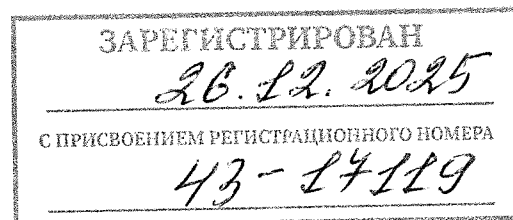 ЗАРЕГИСТРИРОВАН
26.12.2025
С ПРИСВОЕНИЕМ РЕГИСТРАЦИОННОГО НОМЕРА
43-17119